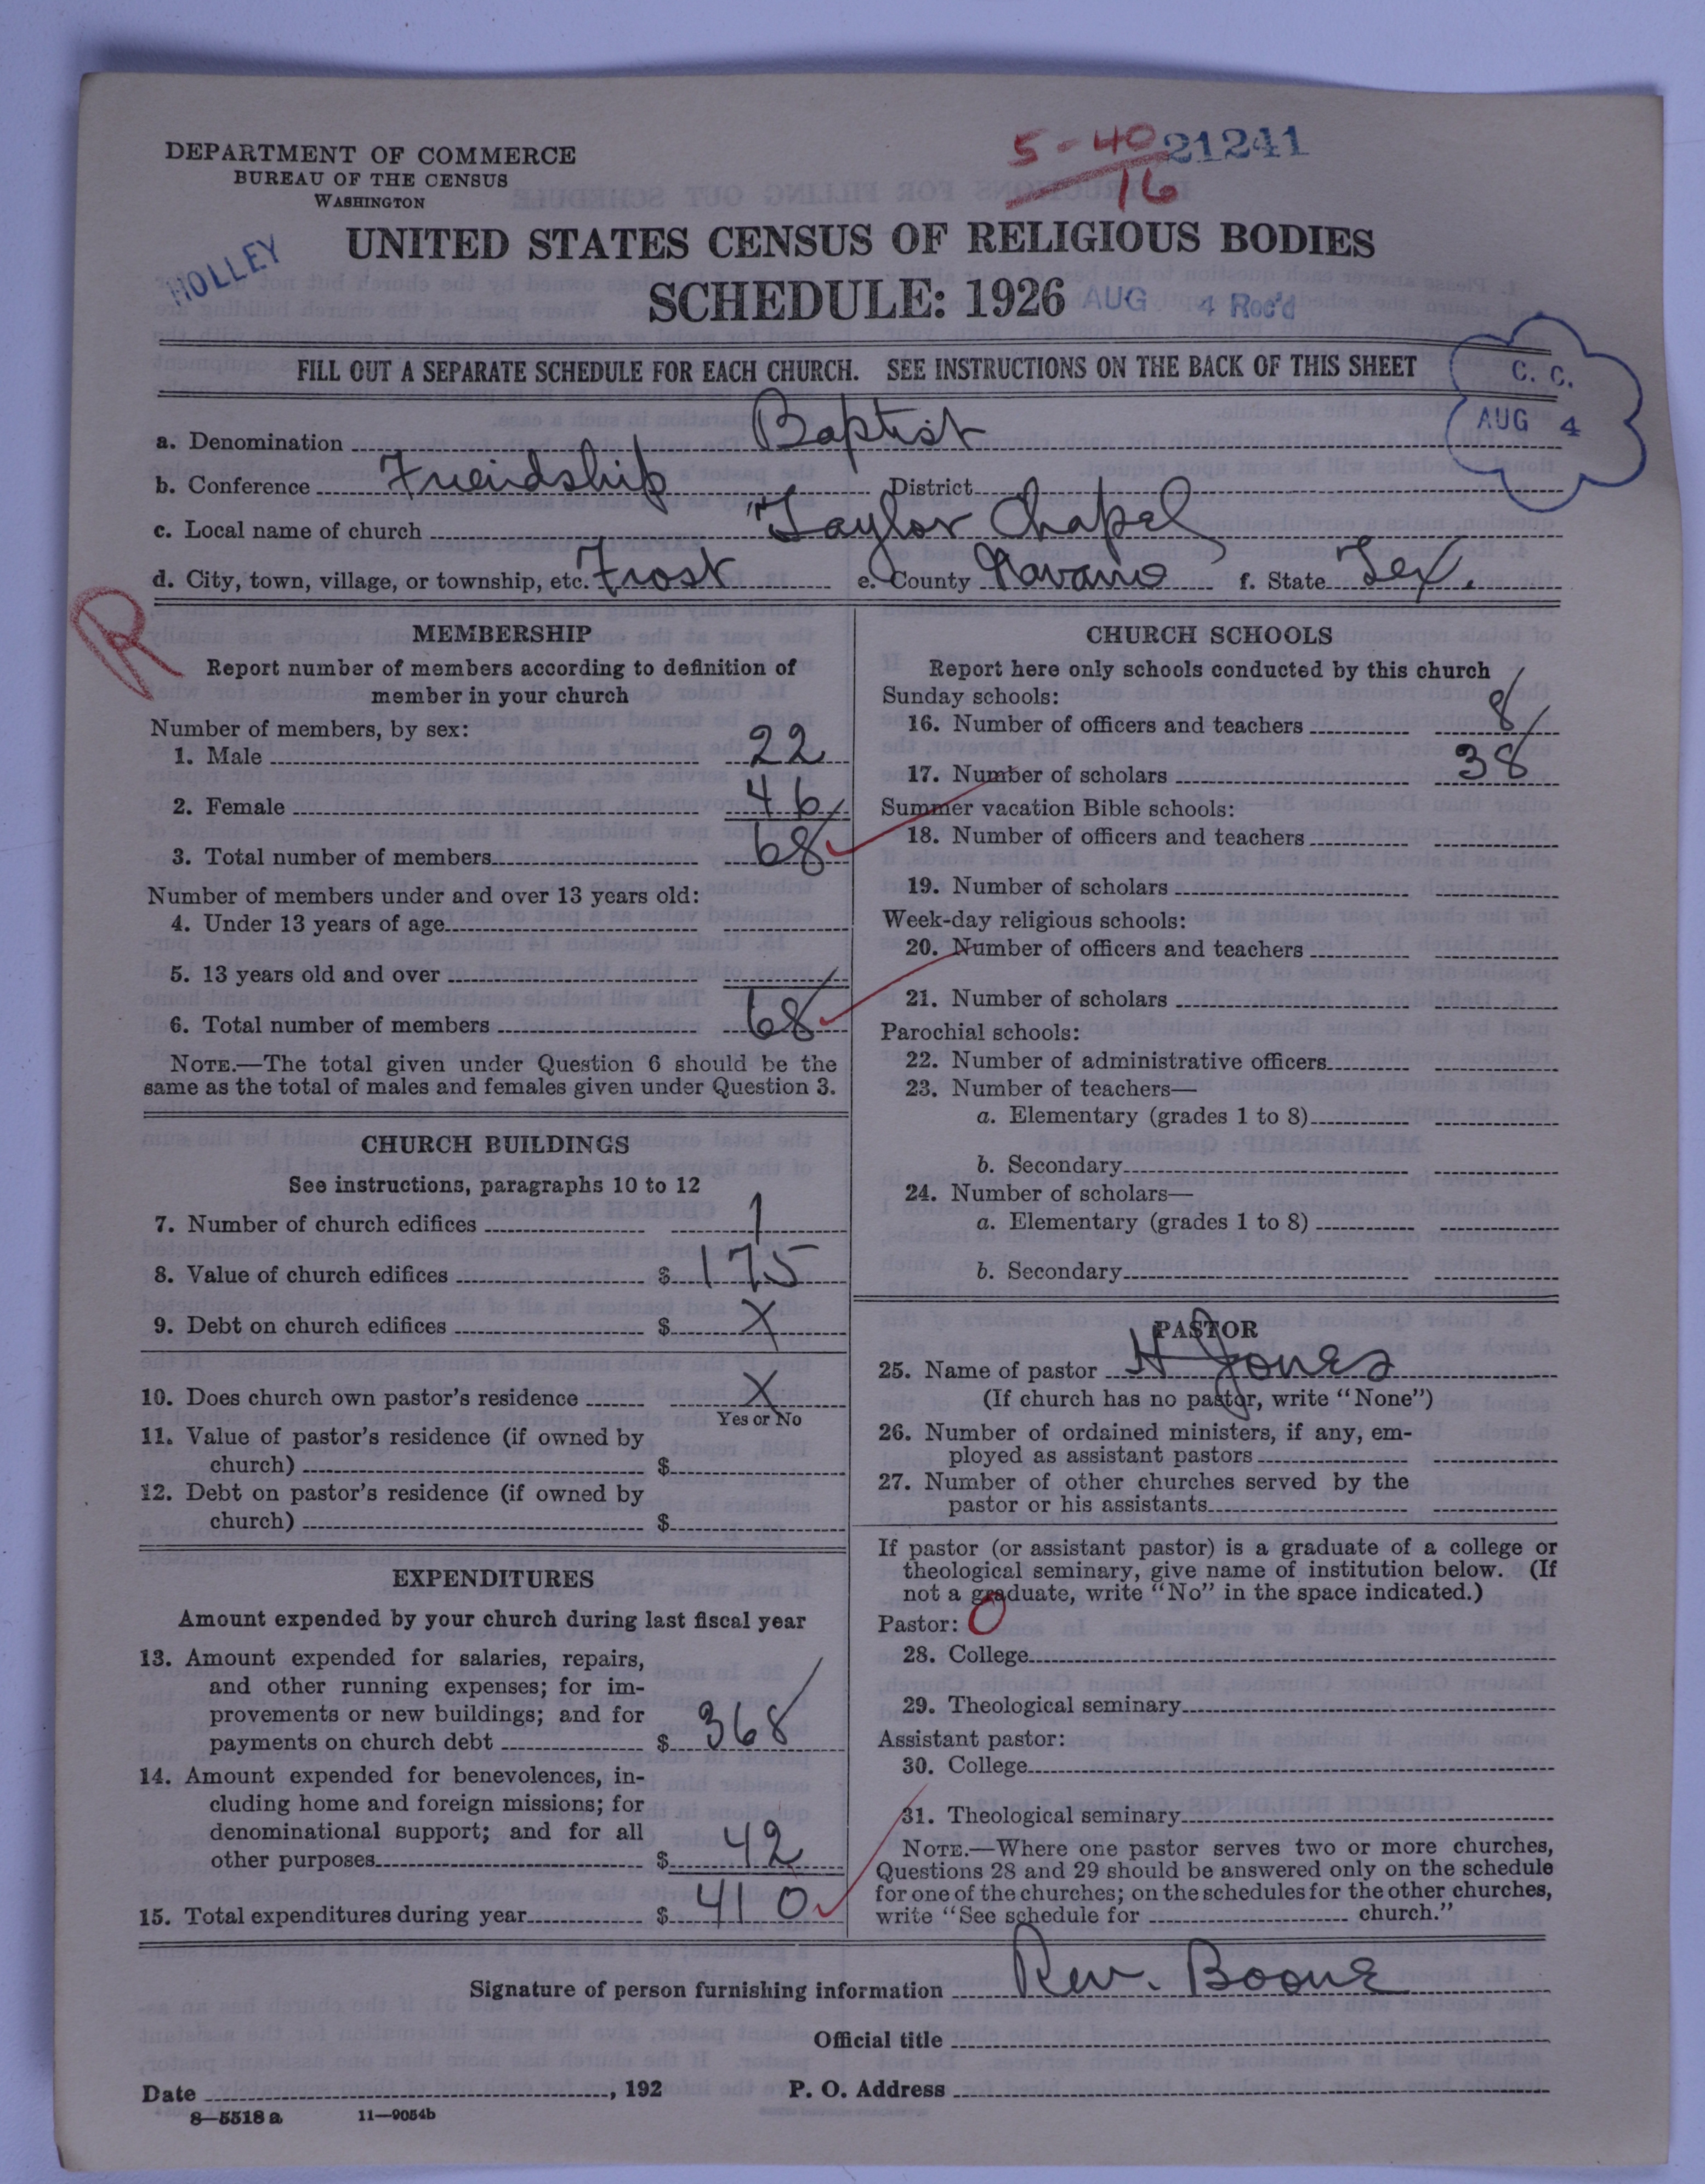 DEPARTMENT OF COMMERCE
BUREAU OF THE CENSUS
WASHINGTON
5-40 21241
16
HOLLEY
UNITED STATES CENSUS OF RELIGIOUS BODIES
SCHEDULE: 1926 AUG 4 Rec'd
FILL OUT A SEPARATE SCHEDULE FOR EACH CHURCH. SEE INSTRUCTIONS ON THE BACK OF THIS SHEET
C. C.
AUG 4
a. Denomination Baptist
b. Conference Friendship District
c. Local name of church "Taylor Chapel
d. City, town, village, or township, etc. Frost e. County Navarro f. State Tex.
R
MEMBERSHIP
Report number of members according to definition of
member in your church
Number of members, by sex:
1. Male 22
2. Female 46
3. Total number of members 68
Number of members under and over 13 years old:
4. Under 13 years of age
5. 13 years old and over
6. Total number of members 68
NOTE.—The total given under Question 6 should be the
same as the total of males and females given under Question 3.
CHURCH BUILDINGS
See instructions, paragraphs 10 to 12
7. Number of church edifices 1
8. Value of church edifices $ 175
9. Debt on church edifices $ X
10. Does church own pastor's residence X
Yes or No
11. Value of pastor's residence (if owned by
church) $
12. Debt on pastor's residence (if owned by
church) $
EXPENDITURES
Amount expended by your church during last fiscal year
13. Amount expended for salaries, repairs,
and other running expenses; for im-
provements or new buildings; and for
payments on church debt $ 368
14. Amount expended for benevolences, in-
cluding home and foreign missions; for
denominational support; and for all
other purposes $ 42
15. Total expenditures during year $ 410
CHURCH SCHOOLS
Report here only schools conducted by this church
Sunday schools:
16. Number of officers and teachers 8
17. Number of scholars 38
Summer vacation Bible schools:
18. Number of officers and teachers
19. Number of scholars
Week-day religious schools:
20. Number of officers and teachers
21. Number of scholars
Parochial schools:
22. Number of administrative officers
23. Number of teachers—
a. Elementary (grades 1 to 8)
b. Secondary
24. Number of scholars—
a. Elementary (grades 1 to 8)
b. Secondary
PASTOR
25. Name of pastor H Jones
(If church has no pastor, write "None")
26. Number of ordained ministers, if any, em-
ployed as assistant pastors
27. Number of other churches served by the
pastor or his assistants
If pastor (or assistant pastor) is a graduate of a college or
theological seminary, give name of institution below. (If
not a graduate, write "No" in the space indicated.)
Pastor: 0
28. College
29. Theological seminary
Assistant pastor:
30. College
31. Theological seminary
NOTE.—Where one pastor serves two or more churches,
Questions 28 and 29 should be answered only on the schedule
for one of the churches; on the schedules for the other churches,
write "See schedule for church."
Signature of person furnishing information Rev. Boone
Official title
Date , 192 P. O. Address
8—5518 a 11—9054b